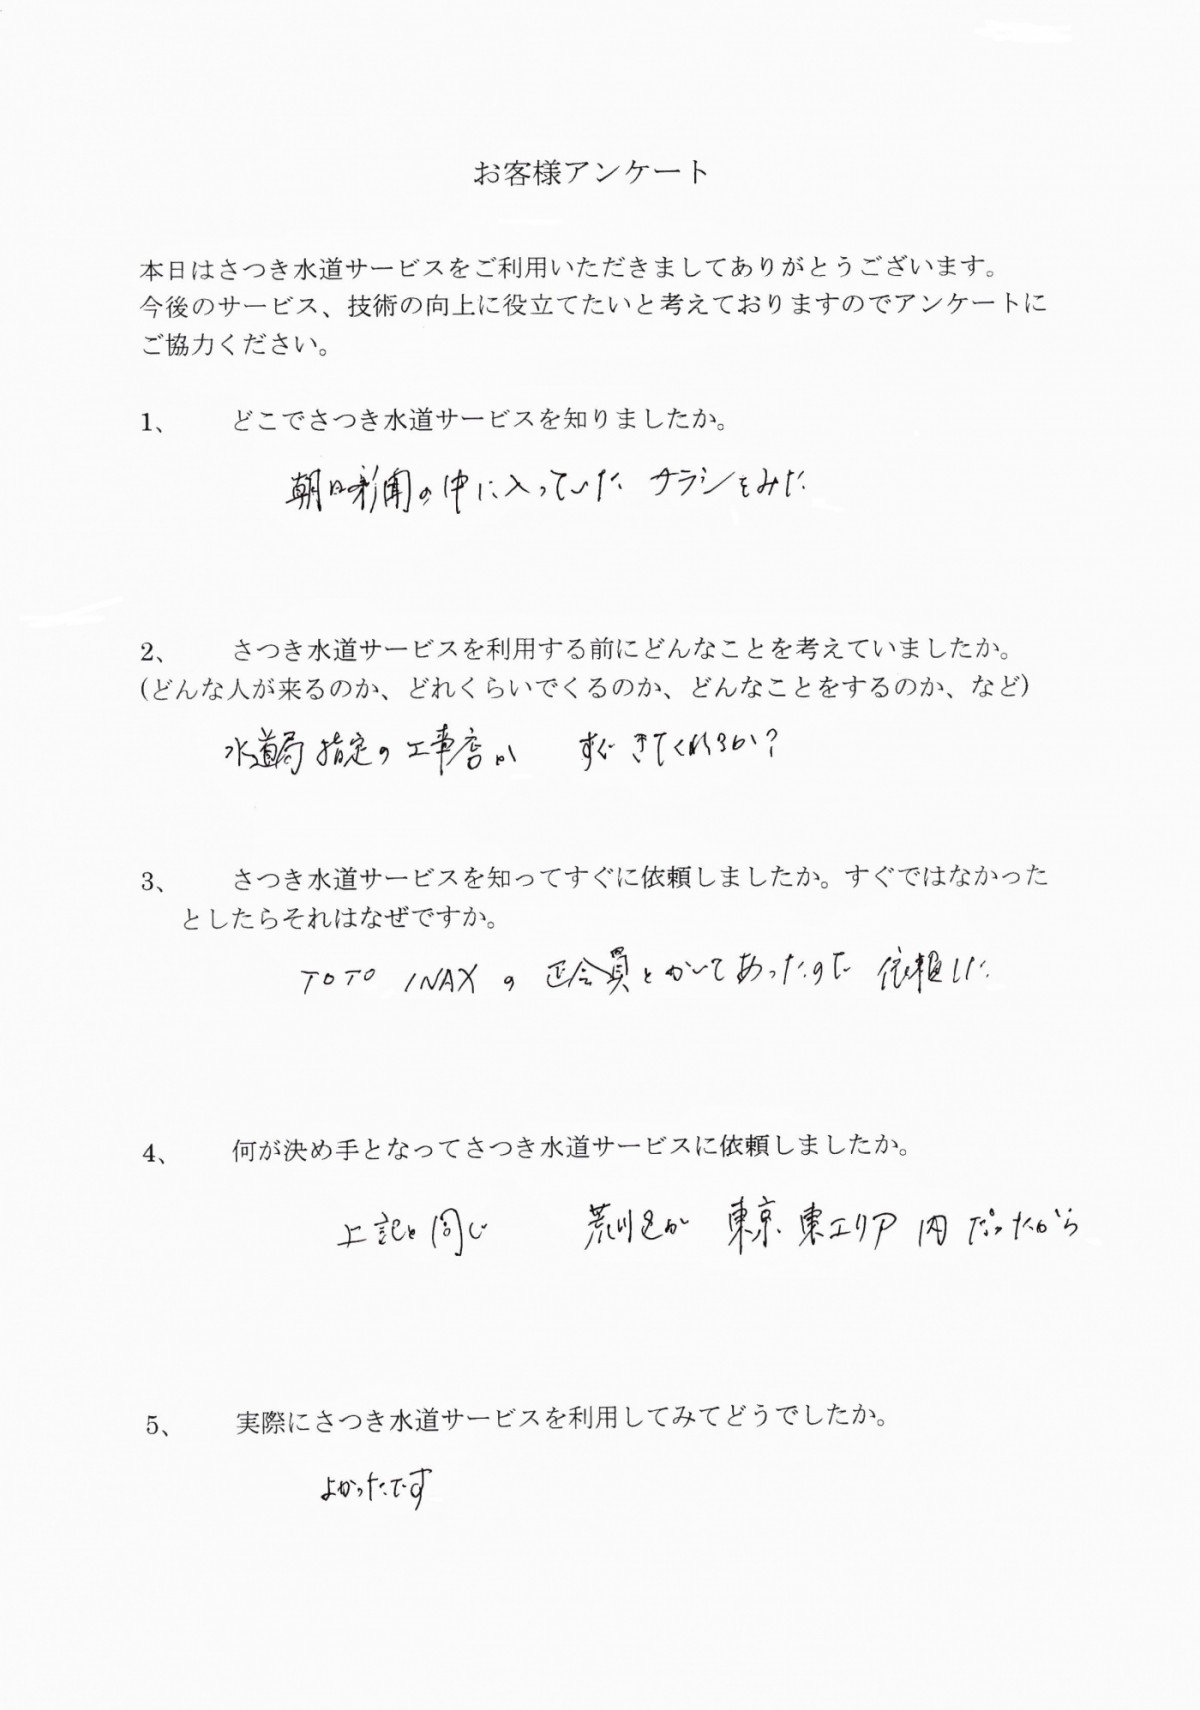 お客様アンケート
本日はさつき水道サービスをご利用いただきましてありがとうございます。
今後のサービス、技術の向上に役立てたいと考えておりますのでアンケートに
ご協力ください。
1、 どこでさつき水道サービスを知りましたか。
朝日新聞の中に入っていた チラシをみた
2、 さつき水道サービスを利用する前にどんなことを考えていましたか。
(どんな人が来るのか、どれくらいでくるのか、どんなことをするのか、など)
水道局指定の工事店か すぐきてくれるか?
3、 さつき水道サービスを知ってすぐに依頼しましたか。すぐではなかった
としたらそれはなぜですか。
TOTO INAXの正会員とかいてあったので 依頼した
4、 何が決め手となってさつき水道サービスに依頼しましたか。
上記と同じ 荒川区が 東京東エリア内だったから
5、 実際にさつき水道サービスを利用してみてどうでしたか。
よかったです